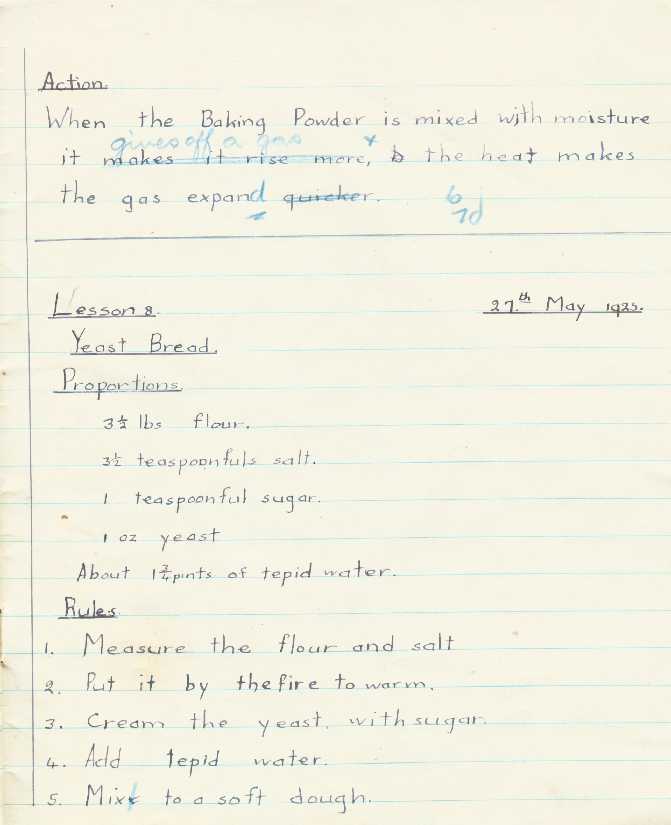 Action.
When the Baking Powder is mixed with moisture
gives off a gas +
it makes it rise more, & the heat makes
the gas expand quicker.
6
7d
Lesson 8. 27th May 1925.
Yeast Bread.
Proportions.
3½ lbs flour.
3½ teaspoonfuls salt.
1 teaspoonful sugar.
1 oz yeast
About 1¾ pints of tepid water.
Rules.
1. Measure the flour and salt
2. Put it by the fire to warm.
3. Cream the yeast, with sugar.
4. Add tepid water.
5. Mix to a soft dough.